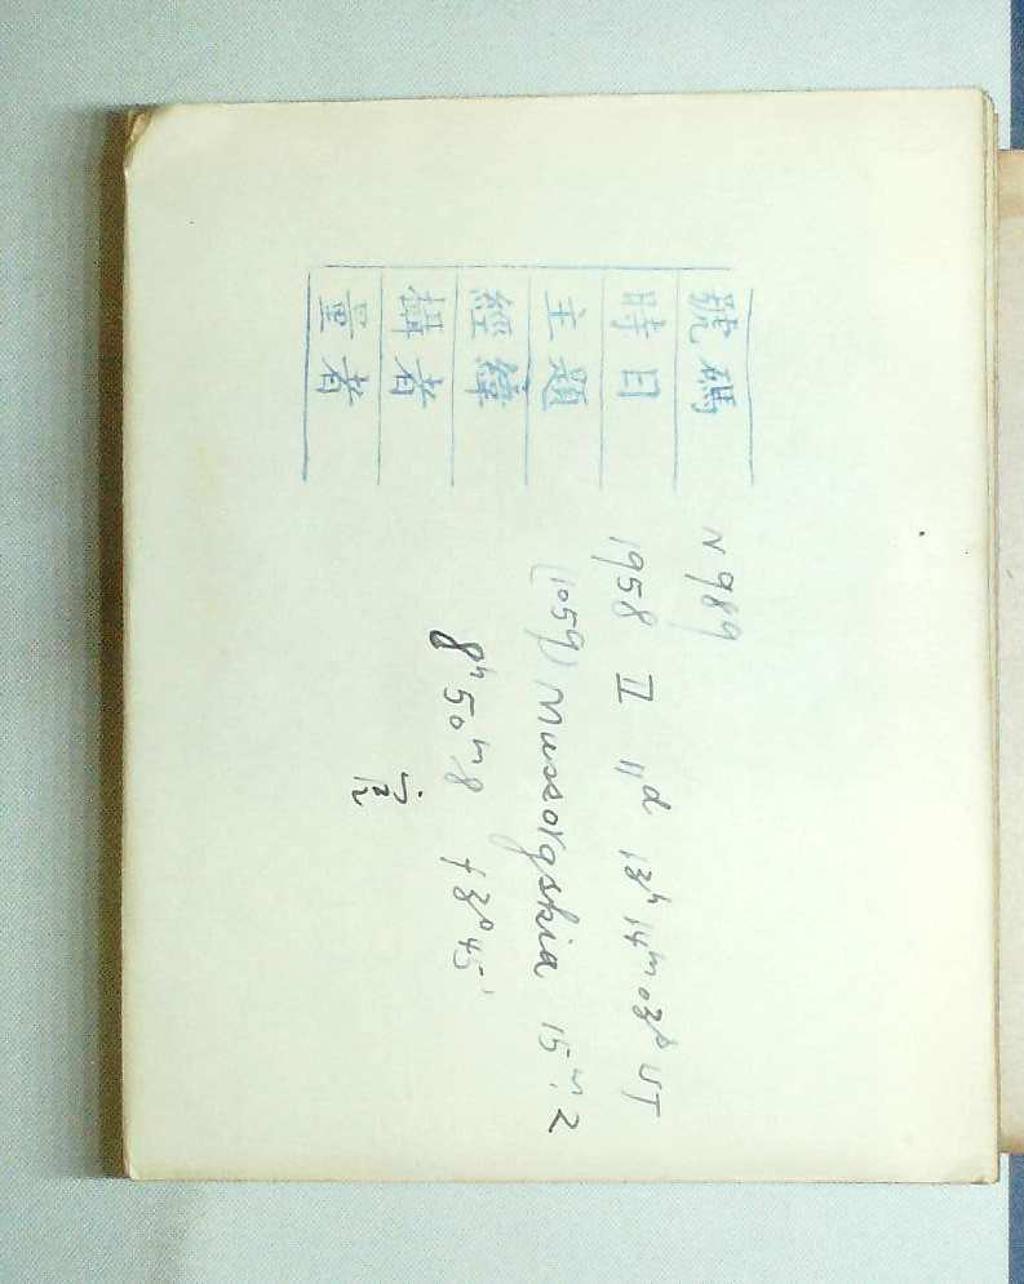 號碼 N 989
時日 1958 II 11d 13h 14m 03s UT
主題 (1059) Mussorgskia 15m.2
經緯 8h 50m.8 +3°45'
攝者
量者